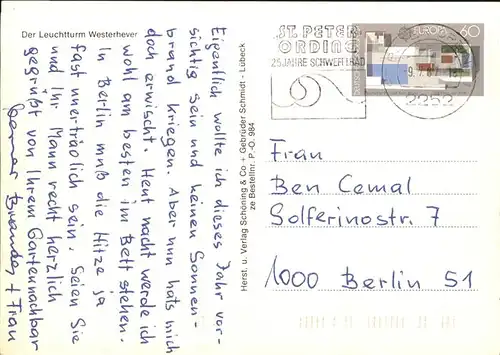 Der Leuchtturm Westerhever
Eigentlich wollte ich dieses Jahr vor-
sichtig sein und keinen Sonnen-
brand kriegen. Aber nun hats mich
doch erwischt. Heut nacht werde ich
wohl am besten im Bett stehen.
In Berlin muß die Hitze ja
fast unerträolich sein. Seien Sie
und Ihr Mann recht herzlich
gegrüßt von Ihrem Gartennachbar
Brandes + Frau
Herst. u. Verlag Schöning & Co + Gebrüder Schmidt - Lübeck
ze Bestellnr. P.-O. 984
ST. PETER
ORDING
25 JAHRE SCHWEFELBAD
EUROPA 60
2252
Frau
Ben Cemal
Solferinostr. 7
1000 Berlin 51